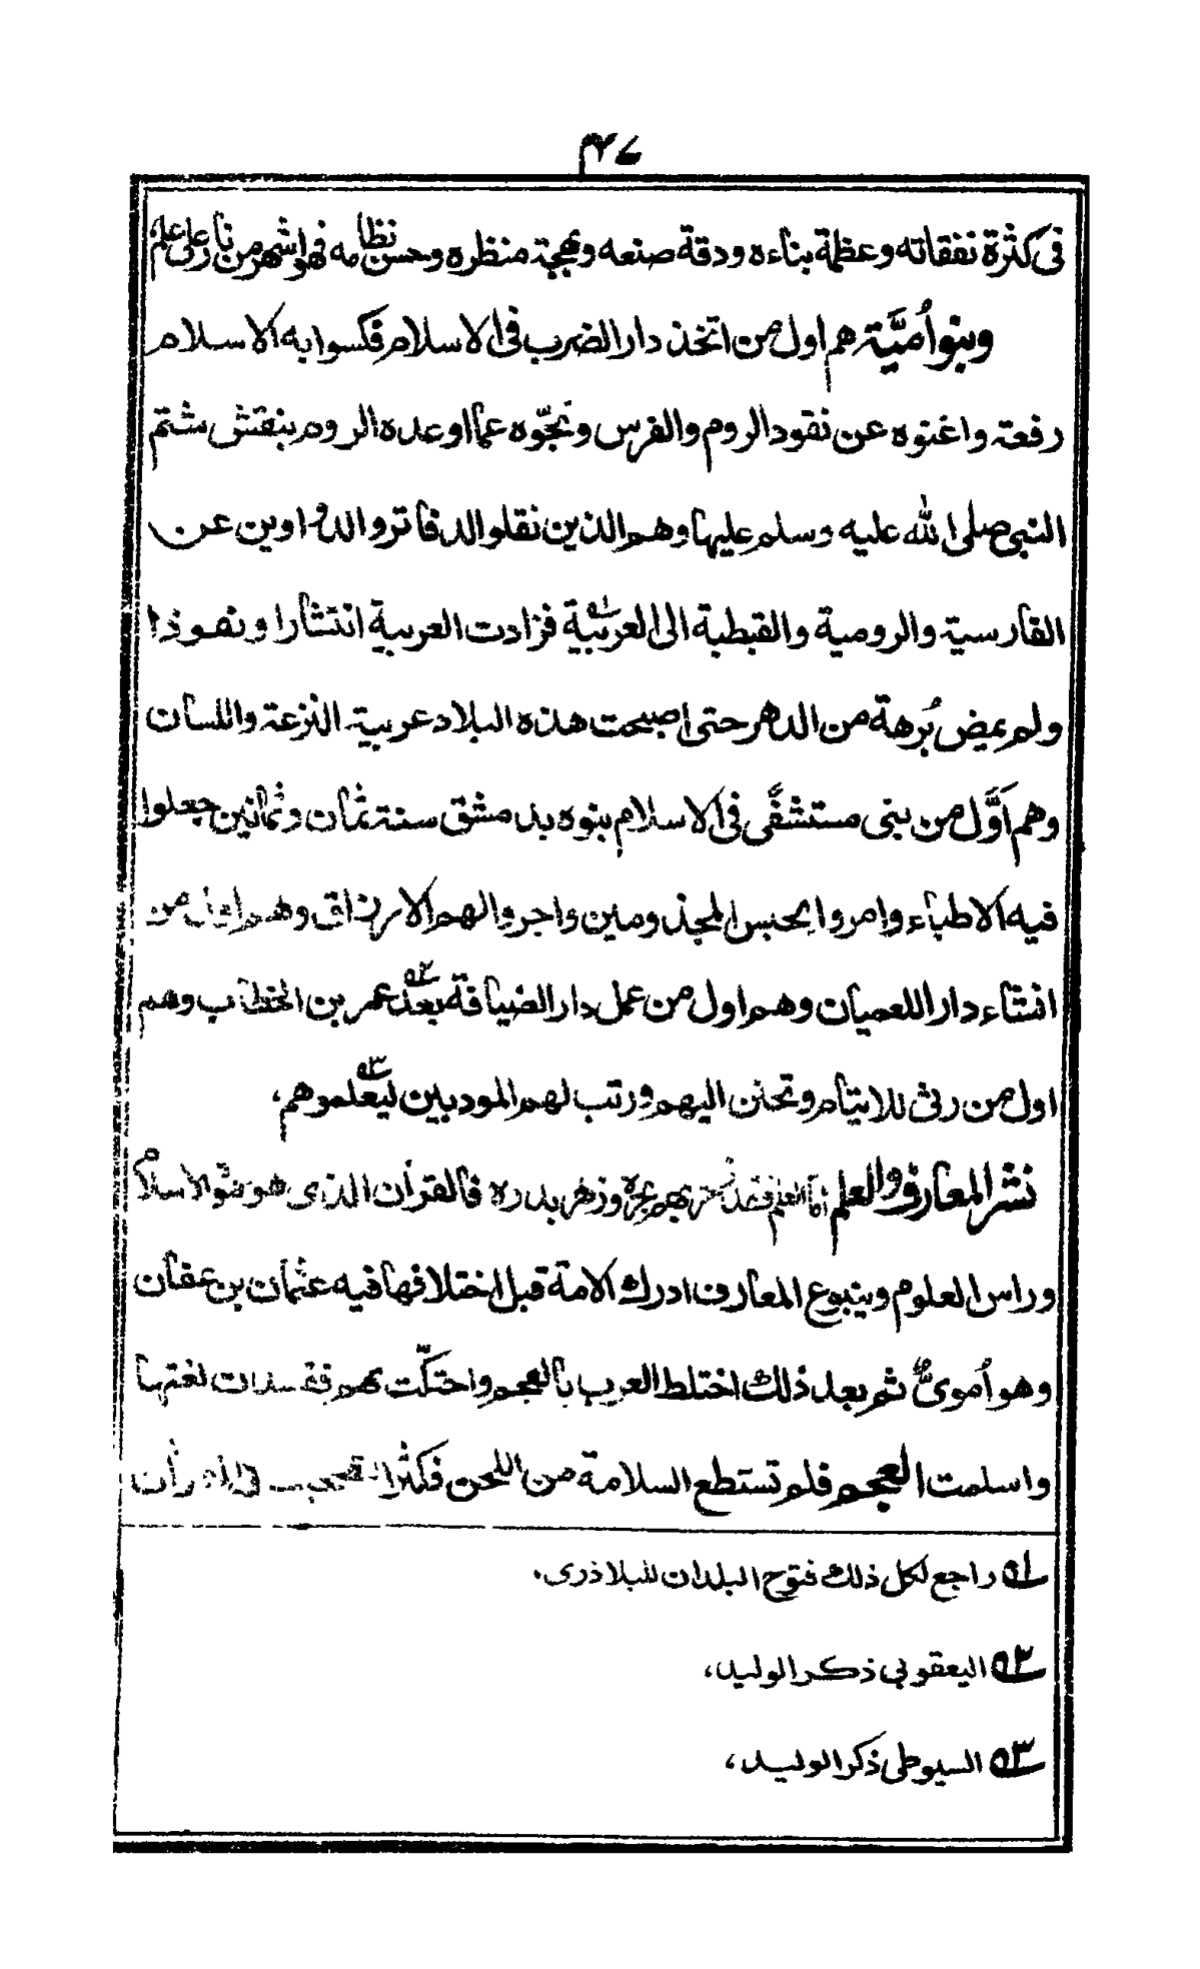 ٢٧
في كثرة نفقاته وعظمة بناءه ودقة صنعه وبهجة منظره وحسن نظامه فهو اشهر من نار على علم
وبنو أُميَّة هم اول من اتخذ دار الضرب في الاسلام فكسوا به الاسلام
رفعة واغنوه عن نقود الروم والفرس ونجّوه عما اوعده الروم بنقش شتم
النبي صلى الله عليه وسلم عليها وهم الذين نقلوا الدفاتر والدواوين عن
الفارسية والرومية والقبطية الى العربية ١ه فزادت العربية انتشارا ونفوذا
ولم يمض بُرهة من الدهر حتى اصبحت هذه البلاد عربية النزعة واللسان
وهم أوَّل من بنى مستشفًى في الاسلام بنوه بدمشق سنة ثمان وثمانين جعلوا
فيه الاطباء وامروا بحبس المجذومين واجروا لهم الارزاق وهم اول من
انشاء دارا للعميان وهم اول من عمل دار الضيافة بعد ٢ه عمر بن الخطاب وهم
اول من رثى للايتام وتحنن اليهم ورتب لهم المودبين ليعلموهم ٣ه،
نشر المعارف والعلم اما العلم فقد زخر بهم بحره وزهر بدره فالقرأن الذى هو الاسلام
وراس العلوم وينبوع المعارف ادرك الامة قبل اختلافها فيه عثمان بن عفان
وهو أُمويٌّ ثم بعد ذلك اختلط العرب بالعجم واحتكّت بهم ففسدت لغتها
واسلمت العجم فلم تستطع السلامة من اللحن فكثر في القرأن
١ه راجع لكل ذلك فتوح البلدان للبلاذرى.
٢ه اليعقوبي ذكر الوليد،
٣ه السيوطى ذكر الوليد،